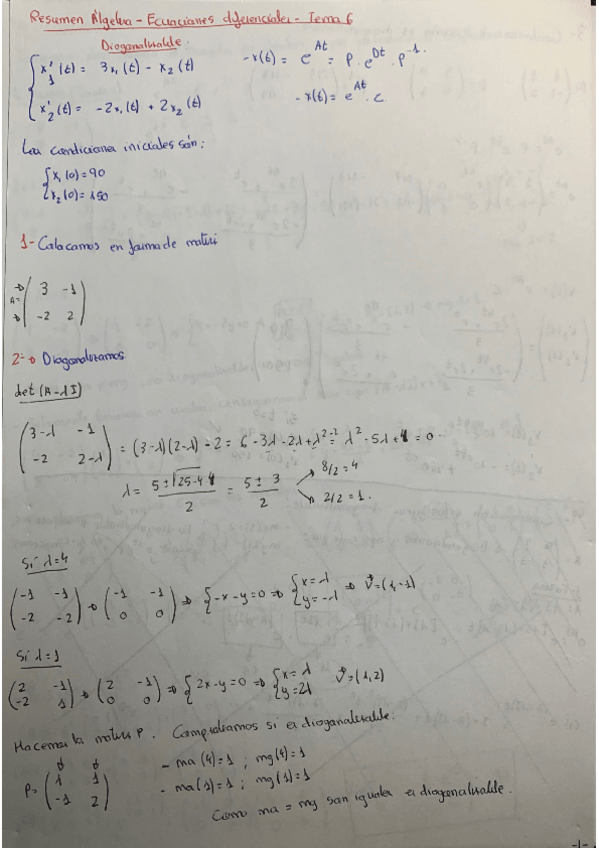 Resumen Álgebra - Ecuaciones diferenciales - Tema 6
Diagonalizable:
x₁'(t) = 3x₁(t) - x₂(t)
x₂'(t) = -2x₁(t) + 2x₂(t)
- x(t) = e^At = P · e^Dt · P^-1.
- x(t) = e^At · c
Las condiciones iniciales són:
x₁(0) = 90
x₂(0) = 150
1- Colocamos en forma de matriz
A = (3 -1
-2 2)
2- → Diagonalizamos
det (A-λI)
(3-λ -1
-2 2-λ) = (3-λ)(2-λ) - 2 = 6 - 3λ - 2λ + λ² - 2 = λ² - 5λ + 4 = 0
λ = (5 ± √25-4·4) / 2 = (5 ± 3) / 2 → 8/2 = 4
→ 2/2 = 1.
Si λ=4
(-1 -1
-2 -2) → (-1 -1
0 0) ⇒ {-x-y=0 ⇒ {x=λ
y=-λ ⇒ v⃗=(1,-1)
Si λ=1
(2 -1
-2 1) → (2 -1
0 0) ⇒ {2x-y=0 ⇒ {x=λ
y=2λ v⃗=(1,2)
Hacemos la matriz P. Comprobamos si es diagonalizable:
P = (1 1
-1 2)
- ma(4)=1 ; mg(4)=1
- ma(1)=1 ; mg(1)=1
Como ma = mg son iguales es diagonalizable.
-1-